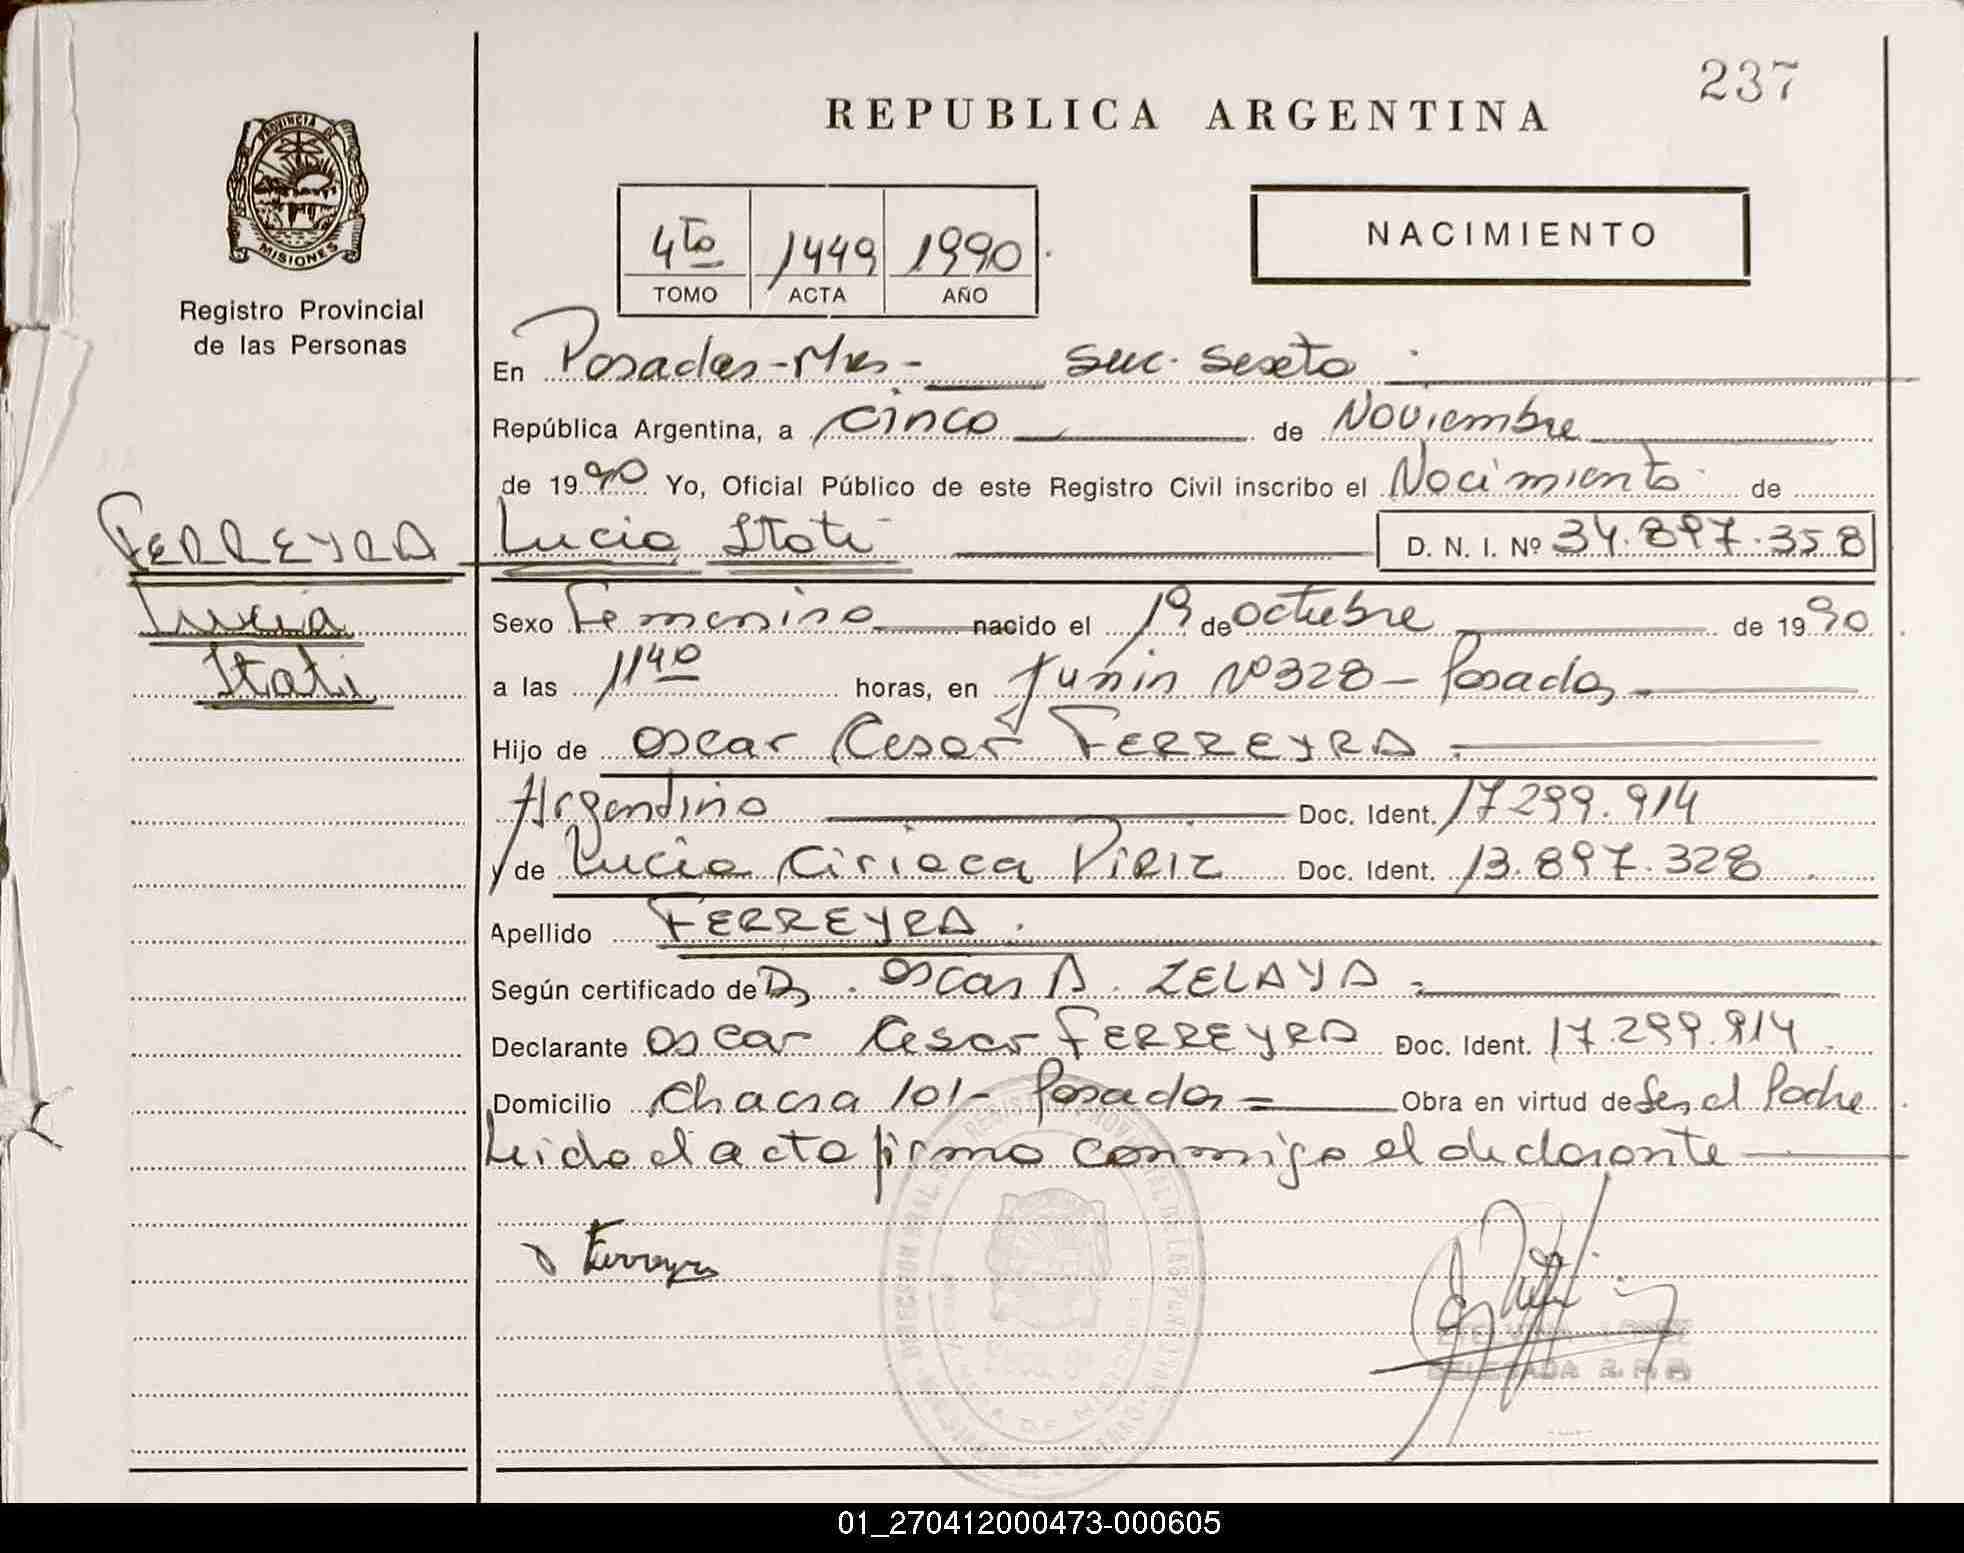 237
REPUBLICA ARGENTINA
PROVINCIA DE
MISIONES
Registro Provincial
de las Personas
4to 1449 1990
TOMO ACTA AÑO
NACIMIENTO
En Posadas-Mnes- suc. sexta
República Argentina, a cinco de Noviembre
de 1990 Yo, Oficial Público de este Registro Civil inscribo el Nacimiento de
FERREYRA Lucia Itati D. N. I. Nº 34.897.358
Lucia
Itati
Sexo Femenino nacido el 19 de octubre de 1990
a las 1140 horas, en Junin Nº 328 - Posadas
Hijo de Oscar Cesar FERREYRA
Argentino Doc. Ident. 17.299.914
y de Lucia Ciriaca Doc. Ident. 13.897.328
Apellido FERREYRA.
Según certificado de Dr. Oscar A. ZELAYA
Declarante Oscar Cesar FERREYRA Doc. Ident. 17.299.914
Domicilio Chacra 101- Posadas Obra en virtud de Ser el Padre
Leida el acta firma conmigo el declarante
Ferreyra
DELEGADA
01_270412000473-000605